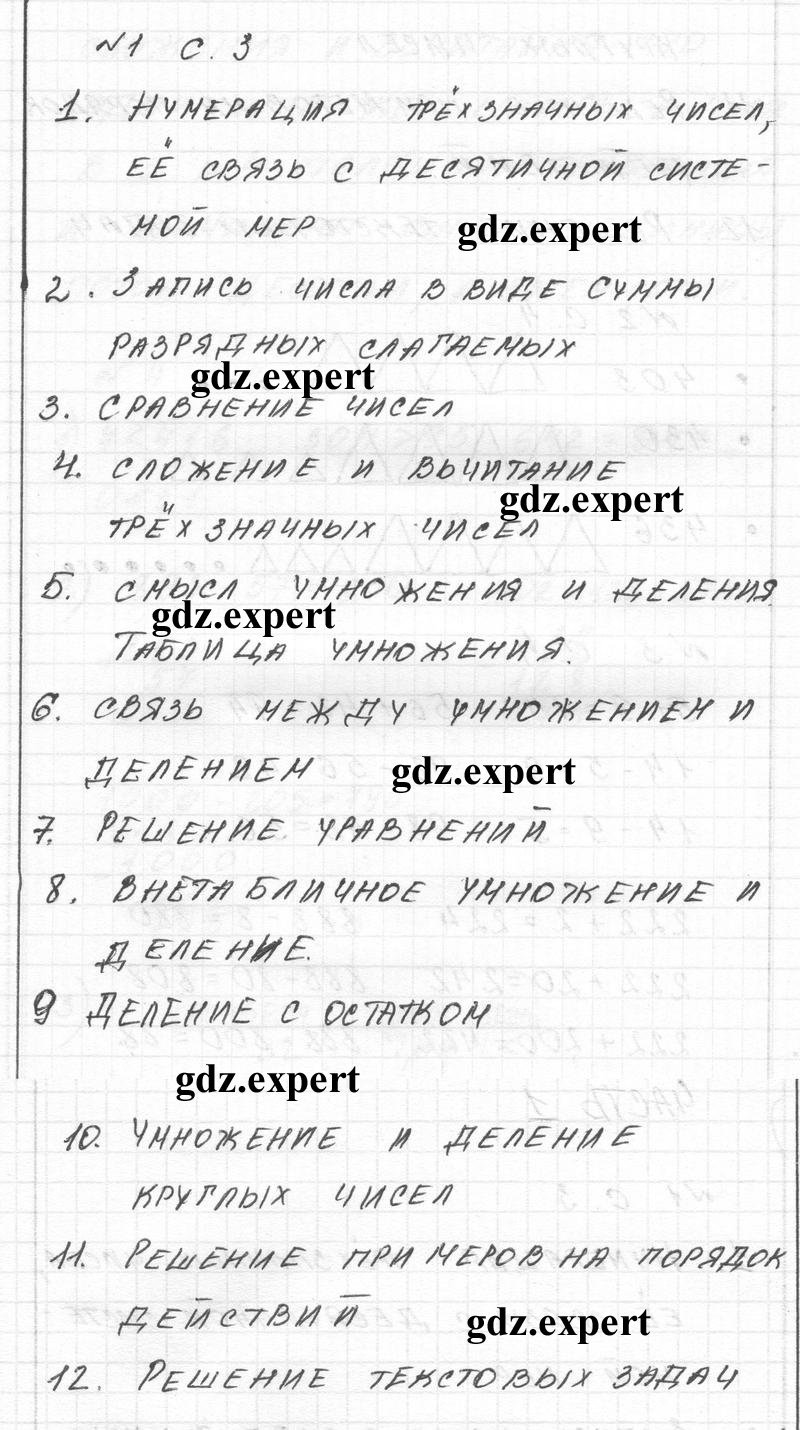 №1 с. 3
1. Нумерация трёхзначных чисел,
её связь с десятичной систе-
мой мер
gdz.expert
2. Запись числа в виде суммы
разрядных слагаемых
gdz.expert
3. сравнение чисел
4. сложение и вычитание
gdz.expert
трёхзначных чисел
5. смысл умножения и деления.
gdz.expert
Таблица умножения.
6. связь между умножением и
делением
gdz.expert
7. Решение уравнений
8. Внетабличное умножение и
деление.
9 Деление с остатком
gdz.expert
10. Умножение и деление
круглых чисел
11. Решение примеров на порядок
действий
gdz.expert
12. Решение текстовых задач